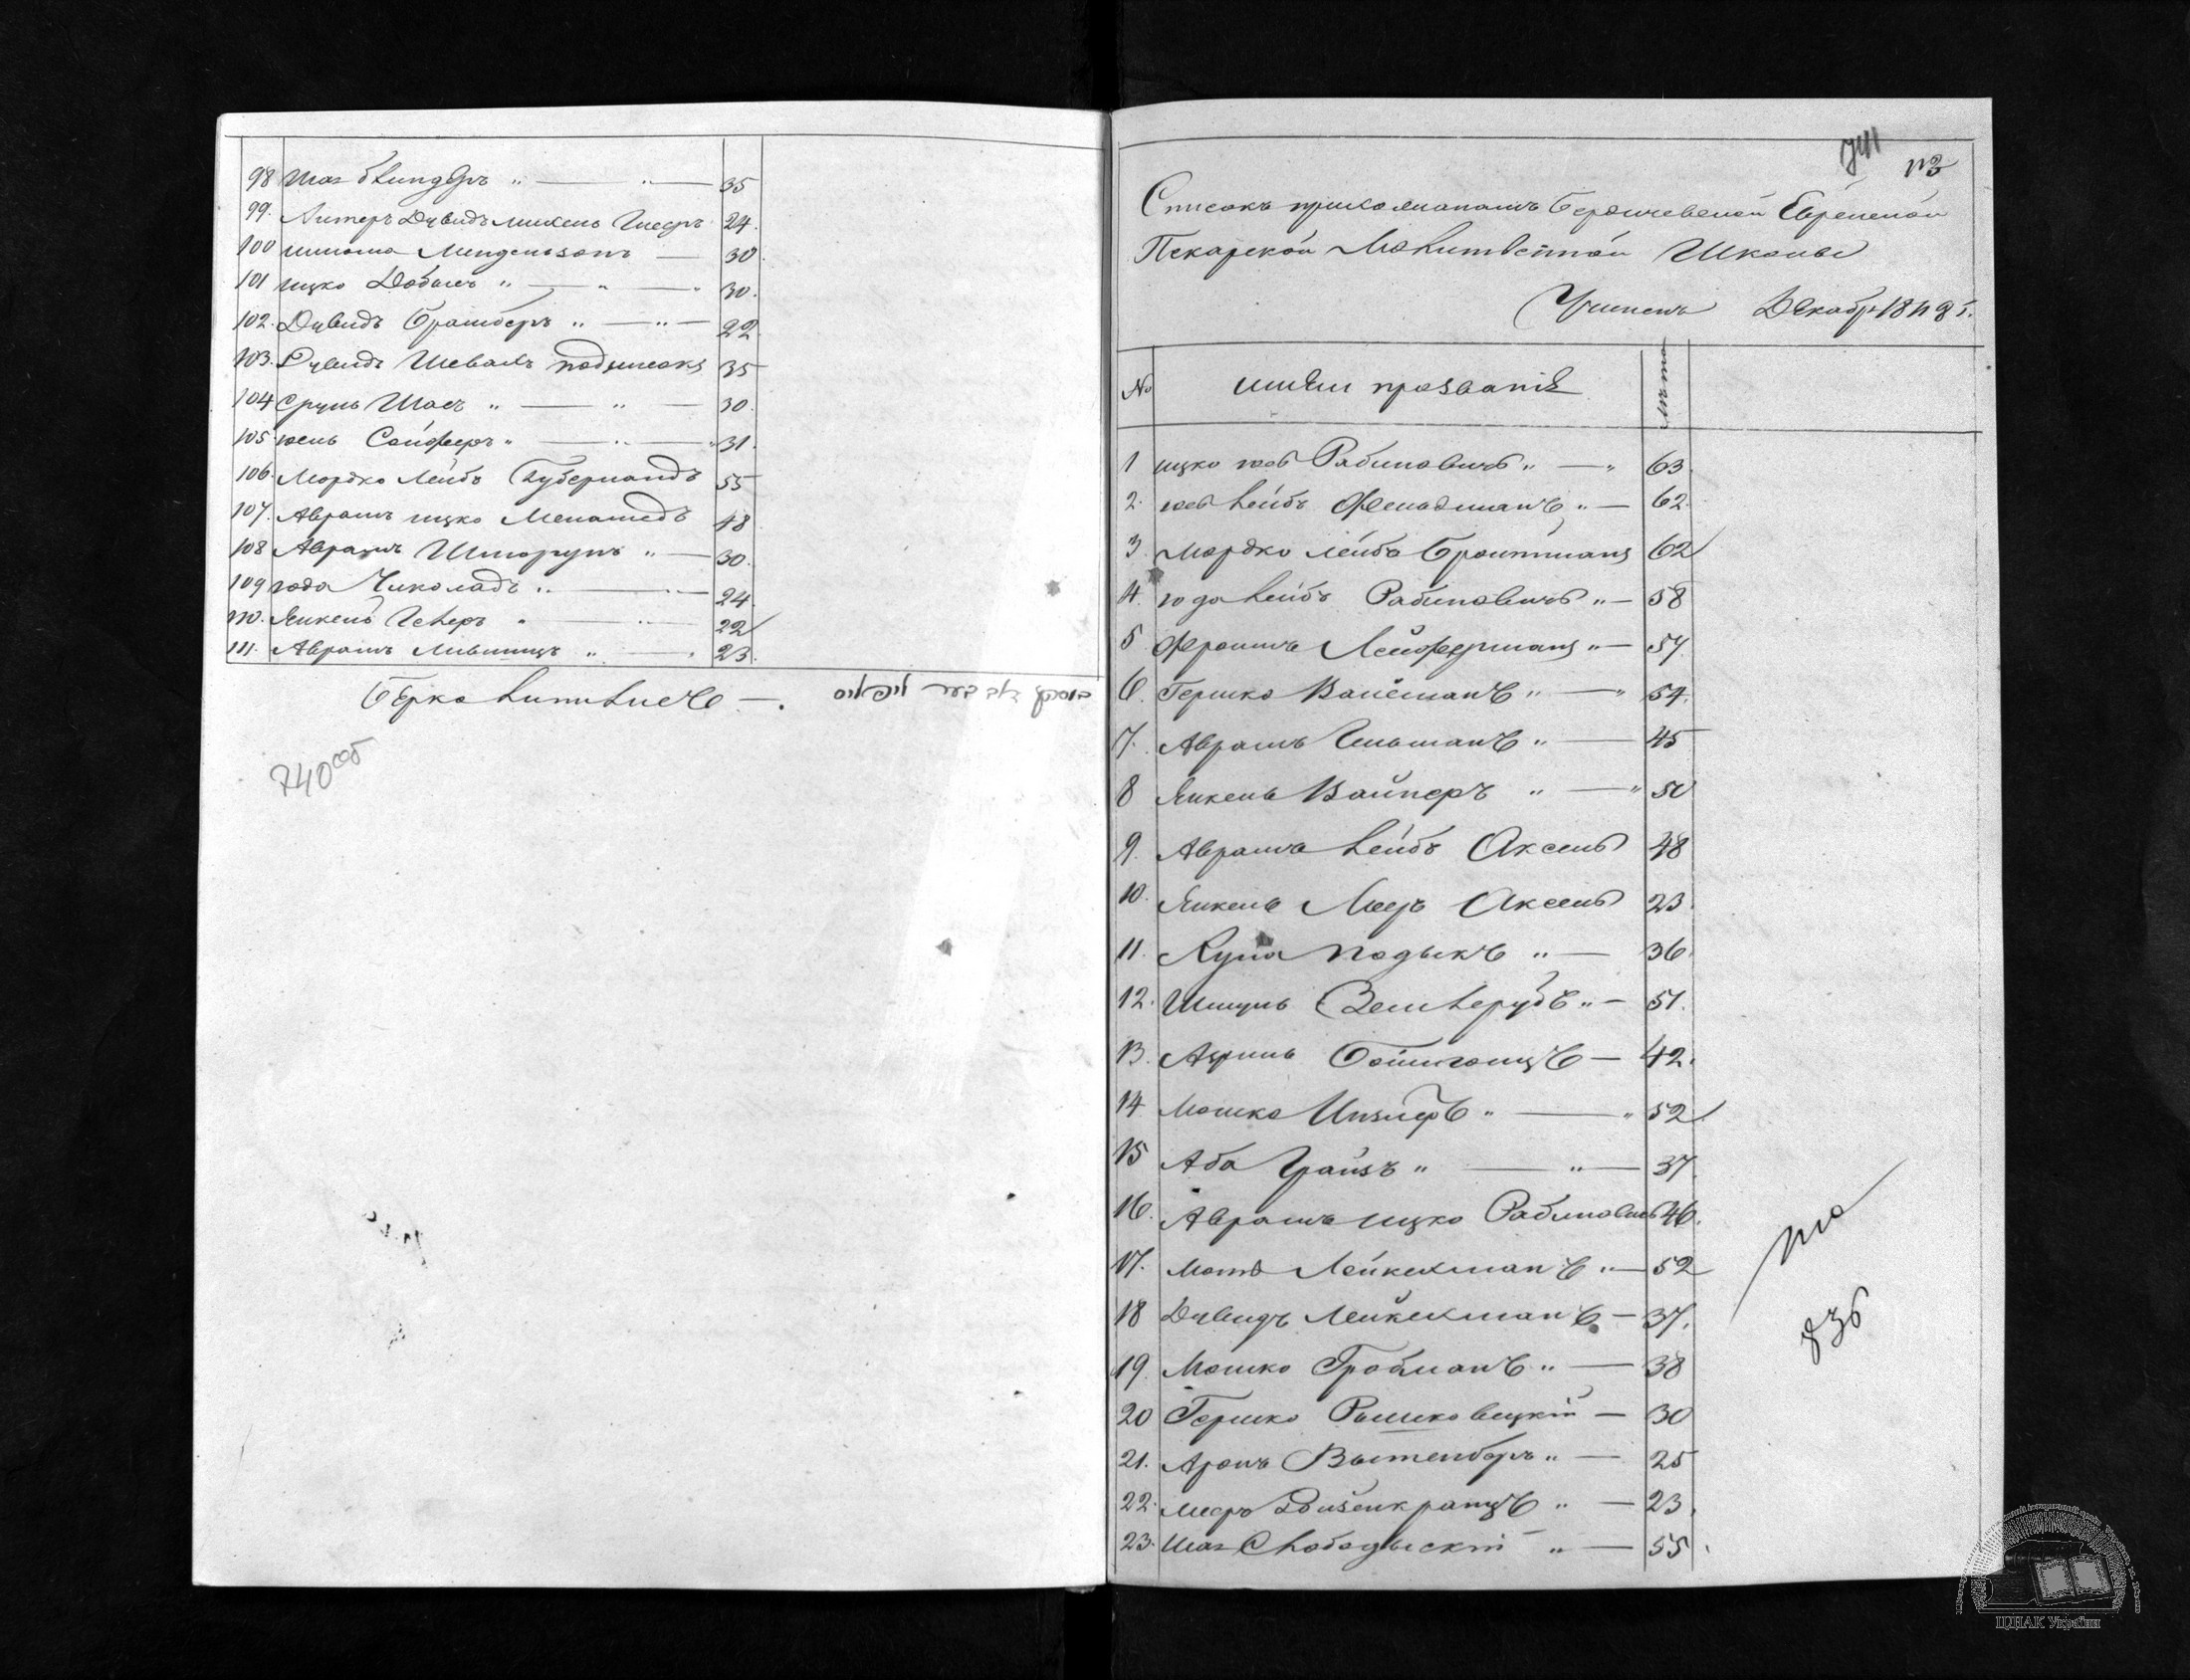 98 Шая Блиндеръ „ — „ — 35
99. Алтеръ Дувидъ Михель 24.
100 Шлиома Мендельзонъ — 30.
101 ицко „ — „ — 30.
102. Дувидъ „ — „ — 22.
103. Дувидъ Шевахъ 35
104 Сруль Шаеъ „ — „ — 30.
105. Сойферъ „ — „ — 31.
106. Мордко Лейбъ Губерландъ 55
107. Аврамъ ицко Менашедъ 48
108 Аврамъ Шторунъ „ — 30.
109 года Чиколадъ „ — „ — 24
110. Янкель Гехеръ „ — „ — 22
111. Аврамъ Лившицъ „ — 23.
Берко —.
740 об
741
113
Списокъ прихожанамъ Бердичевской Еврейской
Пекарской Молитвенной Школы
Декабр 18
№ имѣи прозваніе лѣта
1 ицко юсь Рабиновичъ „ — „ 63
2. юсь Лейбъ Фельдманъ „ — 62.
3 Мордко Лейбъ Бройтманъ 62
4. года Лейбъ Рабиновичъ „ — 58
5 Фроимъ Лейферманъ „ — 57
6. Гершко Вайсманъ „ — „ 54.
7. Аврамъ Гельманъ „ — 45
8 Янкель Вайнеръ „ — „ 50
9. Аврамъ Лейбъ Аксель 48
10. Янкель Мееръ Аксель 23.
11. Подыкъ „ — 36.
12. Шмуль „ — 51.
13. — 42.
14 Мошко „ — „ 52
15 Аба Грайзъ „ — „ — 37.
16. Аврамъ ицко Рабиновичъ 46.
17. Мотя Лейкехманъ „ — 52
18 Дувидъ Лейкехманъ — 37.
19. Мошко Гройманъ „ — 38
20 Гершко Рашковецкій — 30
21. Аронъ Вытенберъ „ — 25
22. Мееръ Розенкранцъ „ — 23.
23. Шая Слободыскій „ — 55.
по
836
ЦДІАК України